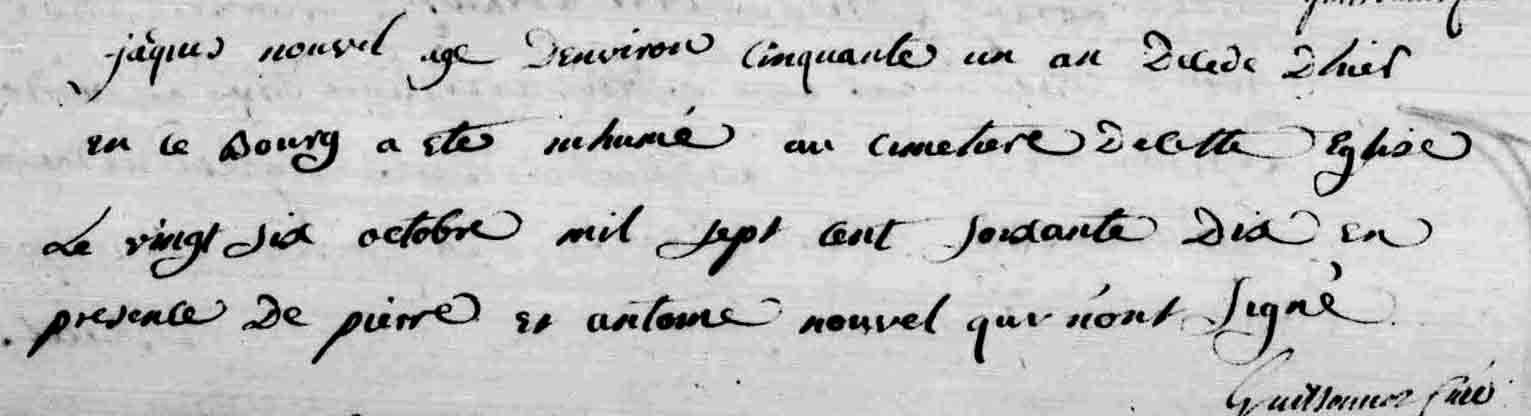 jâques nouvel age Denviron Cinquante un an Decede Dhier
en ce Bourg a ete inhumé au Cimetiere De Cette Eglise
Le vingt six octobre mil sept Cent soixante Dix en
presence De pierre et antoine nouvel qui n'ont signé
Curé